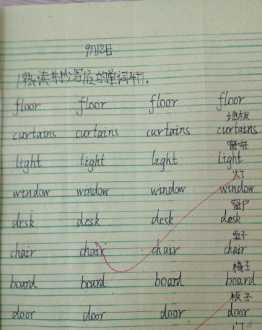 9月12日
1.熟读并抄写后的单词4行。
floor floor floor floor
地板
curtains curtains curtains curtains
窗帘
light light light light
灯
window window window window
窗户
desk desk desk desk
桌子
chair chair chair chair
椅子
board board board board
door door door door
门